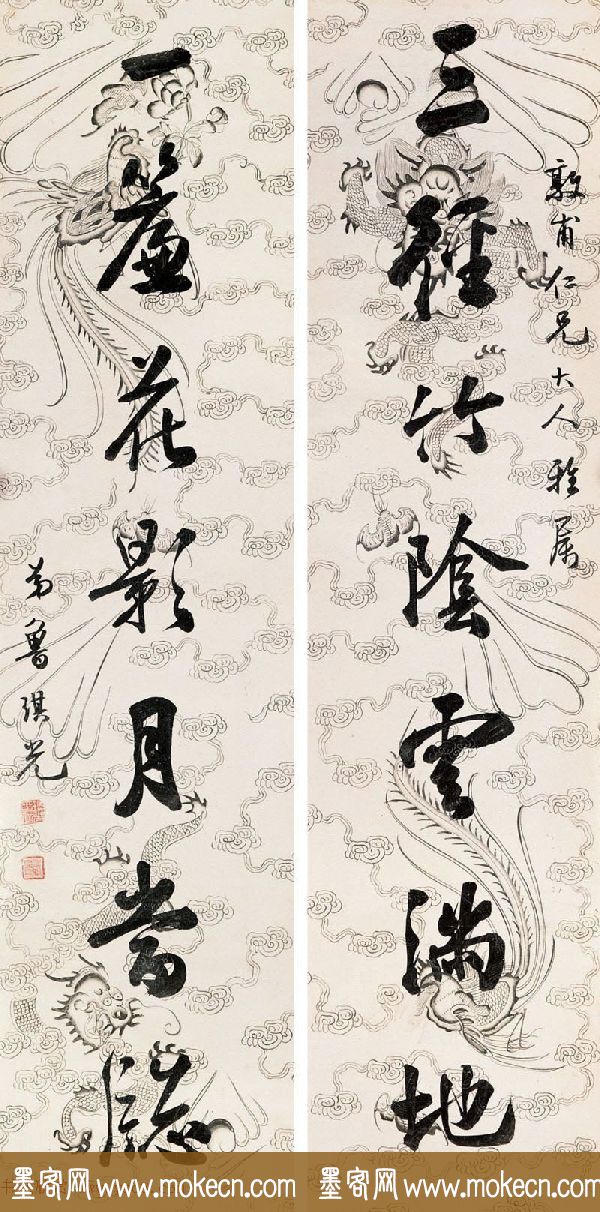 敦甫仁兄大人雅属
三径竹陰雲满地
一簾花影月當牎
弟魯琪光
墨客网 www.mokecn.com 墨客网 www.mokecn.com